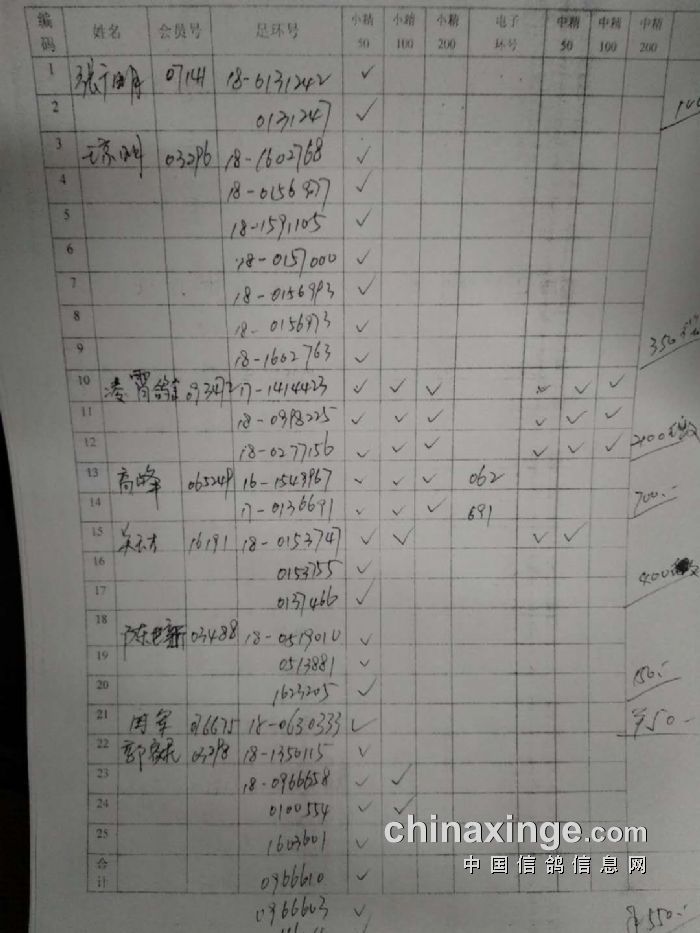 编码 姓名 会员号 足环号 小精50 小精100 小精200 电子环号 中精50 中精100 中精200
1 07141 18-0131242 ✓
2 0131247 ✓
3 03296 18-1602768 ✓
4 18-0156977 ✓
5 18-1591105 ✓
6 18-0157000 ✓
7 18-0156993 ✓
8 18-0156973 ✓
9 18-1602763 ✓
350
10 凌霄鸽舍 093472 17-1414423 ✓ ✓ ✓ ✓ ✓ ✓
11 18-0998225 ✓ ✓ ✓ ✓ ✓ ✓
12 18-0277156 ✓ ✓ ✓ ✓ ✓ ✓
13 高峰 065249 16-1543967 ✓ ✓ ✓ 062
14 17-0136691 ✓ ✓ ✓ 691
700.-
15 16191 18-0153747 ✓ ✓ ✓ ✓
16 0153755 ✓
17 0137466 ✓
400
18 03488 18-0519010 ✓
19 0513881 ✓
20 1623205 ✓
150.-
21 周军 036675 18-0630333 ✓
¥50-
22 03298 18-1350115 ✓
23 18-0966658 ✓ ✓
24 0100554 ✓ ✓
25 1603601 ✓
合计 0966610 ✓
0966603 ✓
550.-
chinaxinge.com
中国信鸽信息网